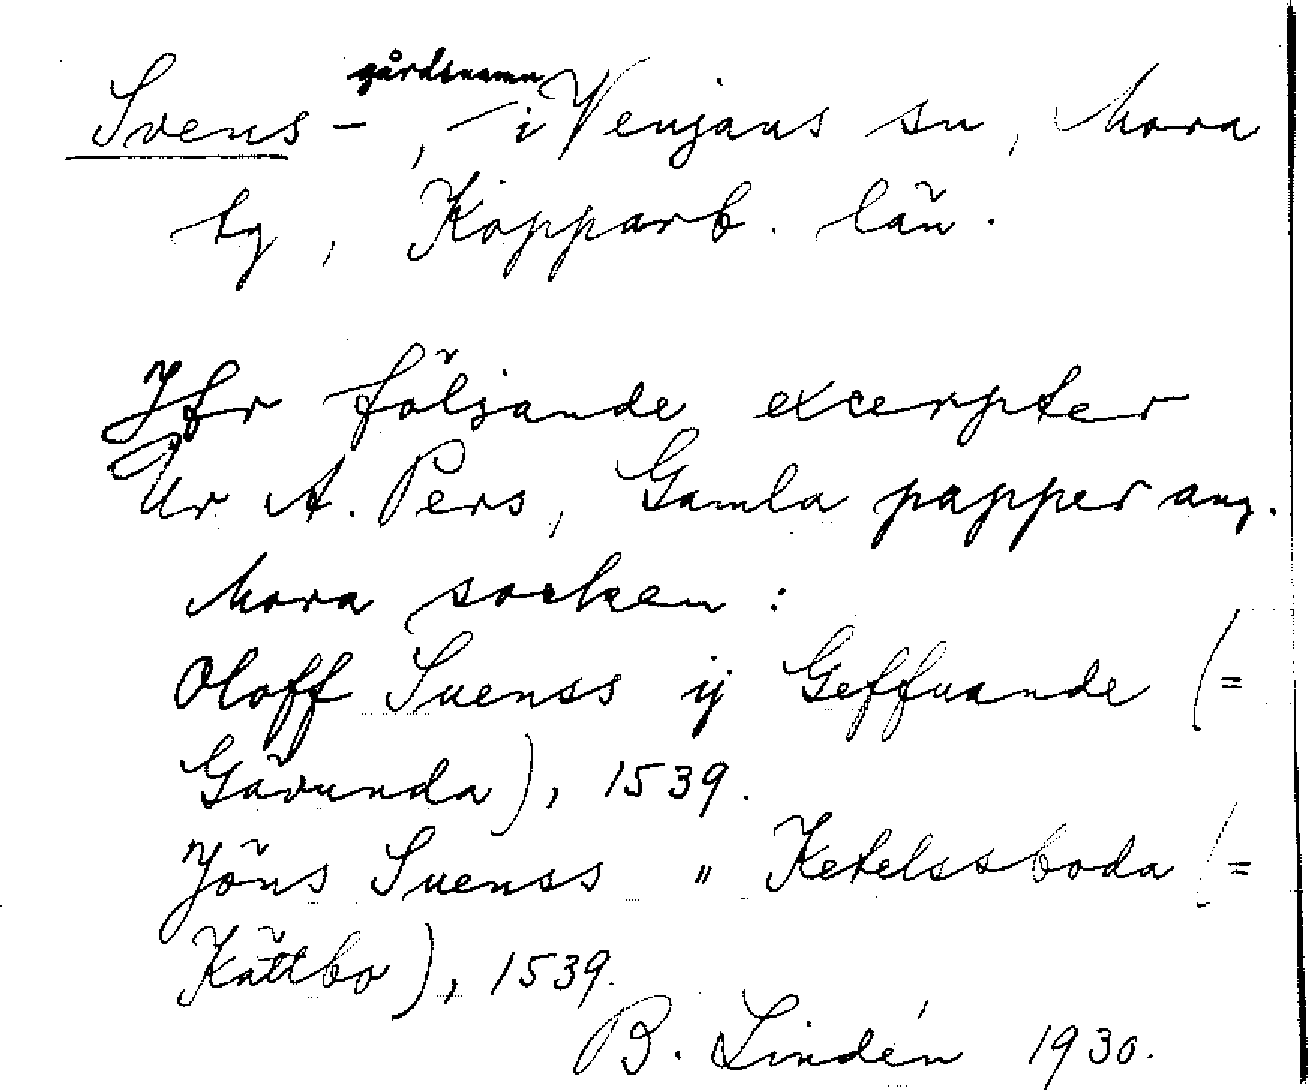 gårdsnamn
Svens-, i Venjans sn, Mora
tg, Kopparb. län.
Jfr följande excerpter
Ur A. Pers, Gamla papper ang.
Mora socken:
Oloff Suenss ij Geffuande (=
Gävunda), 1539.
Jöns Suenss " Ketelssboda (=
Kättbo), 1539.
B. Lindén 1930.